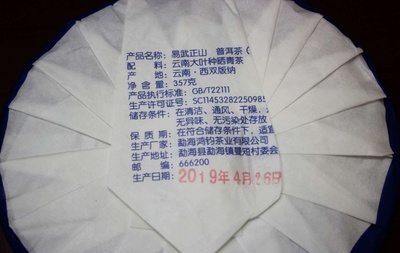 产品名称:易武正山 普洱茶(
配 料:云南大叶种晒青茶
产 地:云南·西双版纳
净含量:357克
产品执行标准:GB/T22111
生产许可证号:SC1145328225098
储存条件:在清洁、通风、干燥、
无异味、无污染处存放
保 质 期:在符合储存条件下,适宜
生产厂家:勐海鸿钧茶业有限公司
生产地址:勐海县勐海镇曼 村委会
邮 编:666200
生产日期:2019年4月16日